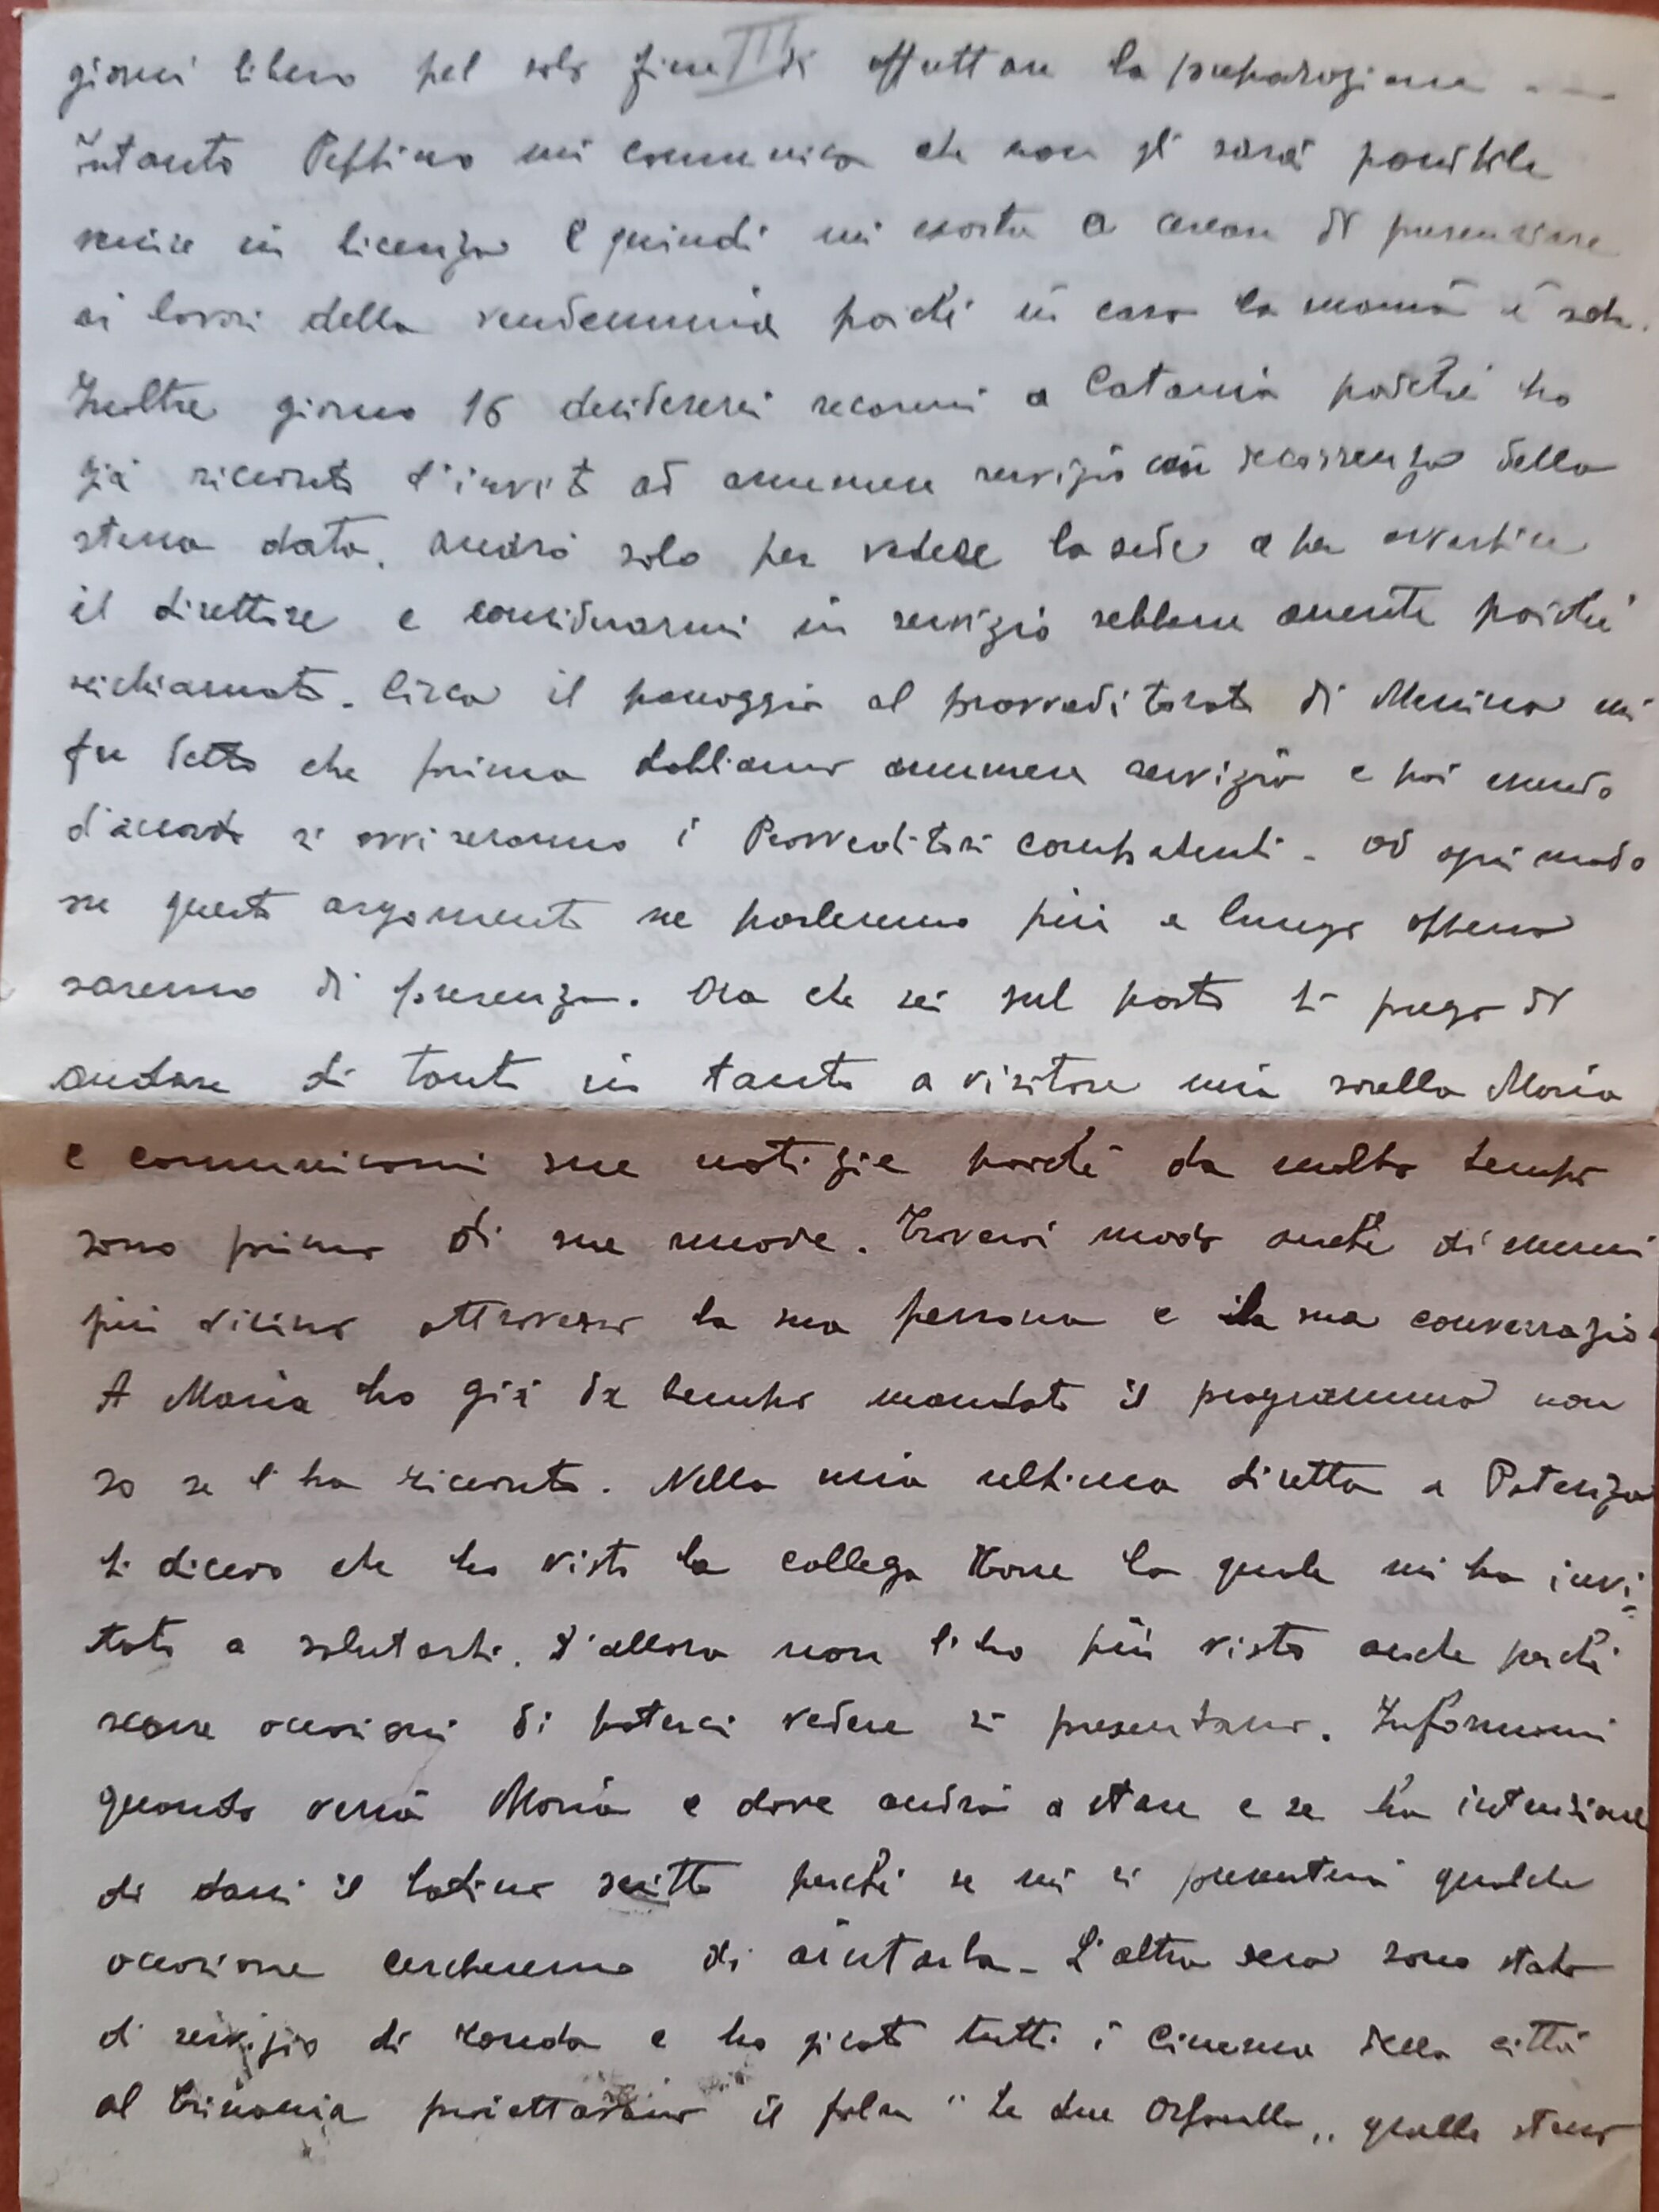 III
giorni libero pel solo fine di effettuare la preparazione ...
Intanto Peppino mi comunica che non gli sarà possibile
venire in licenza e quindi mi esorta a cercare di presenziare
ai lavori della vendemmia poiché in casa la mamma è sola.
Inoltre giorno 16 desidererei recarmi a Catania poiché ho
già ricevuto l'invito ad assumere servizio con decorrenza della
stessa data. Andrò solo per vedere la sede e per avvertire
il direttore e considerarmi in servizio sebbene assente poiché
richiamato. Circa il passaggio al provveditorato di Messina mi
fu detto che prima dobbiamo assumere servizio e poi essendo
d'accordo si avviseranno i Provveditori competenti - ad ogni modo
su questo argomento ne parleremo più a lungo appena
saremo di presenza. Ora che sei sul posto ti prego di
andare di tanto in tanto a visitare mia sorella Maria
e comunicarmi sue notizie poiché da molto tempo
sono privo di sue nuove. Troverai modo anche di essermi
più vicino attraverso la sua persona e la sua conversazio
A Maria ho già da tempo mandato il programma non
so se l'ha ricevuto. Nella mia ultima diretta a Potenza
ti dicevo che ho visto la collega la quale mi ha invi=
tato a salutarti. D'allora non l'ho più visto anche perché
scarse occasioni di poterci vedere si presentano. Informami
quando verrà Maria e dove andrà a stare e se ha intenzione
di dare il latino scritto perché se mi si presenterà qualche
occasione cercheremo di aiutarla - L'altra sera sono stato
di servizio di ronda e ho girato tutti i cinema della città
al Trinacria proiettavano il film "Le due Orfanelle" quello stesso